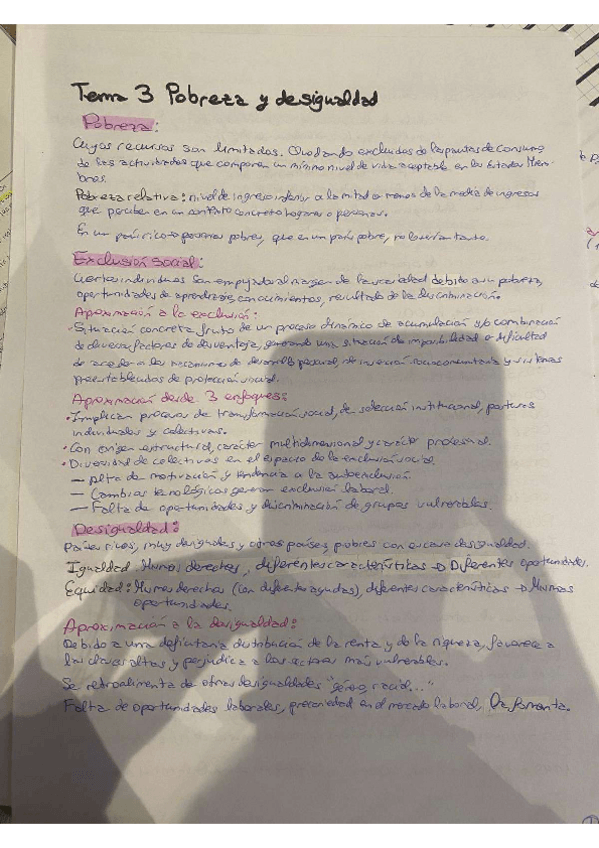 Tema 3 Pobreza y desigualdad
Pobreza:
Cuyos recursos son limitados. Quedando excluidos de las pautas de consumo
de las actividades que componen un mínimo nivel de vida aceptable en los Estados Miem-
bros.
Pobreza relativa: nivel de ingreso inferior a la mitad o menos de la media de ingresos
que perciben en un contexto concreto hogares o personas.
En un país rico personas pobres, que en un país pobre, no lo serían tanto.
Exclusión social:
Ciertos individuos son empujados al margen de la sociedad debido a su pobreza,
oportunidades de aprendizaje, conocimientos, resultado de la discriminación.
Aproximación a la exclusión:
·Situación concreta fruto de un proceso dinámico de acumulación y/o combinación
de diversos factores de desventaja, generando una situación de imposibilidad o dificultad
de acceder a los mecanismos de desarrollo personal, de inserción sociocomunitaria y sistemas
preestablecidos de protección social.
Aproximación desde 3 enfoques:
·Implican procesos de transformación social, de selección institucional, posturas
individuales y colectivas.
·Con origen estructural, carácter multidimensional y carácter procesual.
·Diversidad de colectivos en el espacio de la exclusión social.
— Alta de motivación y tendencia a la autoexclusión.
— Cambios tecnológicos generan exclusión laboral.
— Falta de oportunidades y discriminación de grupos vulnerables.
Desigualdad:
Países ricos, muy desiguales y otros países, pobres con escasa desigualdad.
Igualdad. Mismos derechos, diferentes características → Diferentes oportunidades.
Equidad: Mismos derechos (con diferentes ayudas), diferentes características → Mismas
oportunidades.
Aproximación a la desigualdad:
Debido a una deficitaria distribución de la renta y de la riqueza, favorece a
las clases altas y perjudica a los actores más vulnerables.
Se retroalimenta de otras desigualdades "género, racial..."
Falta de oportunidades laborales, precariedad en el mercado laboral, la fomenta.